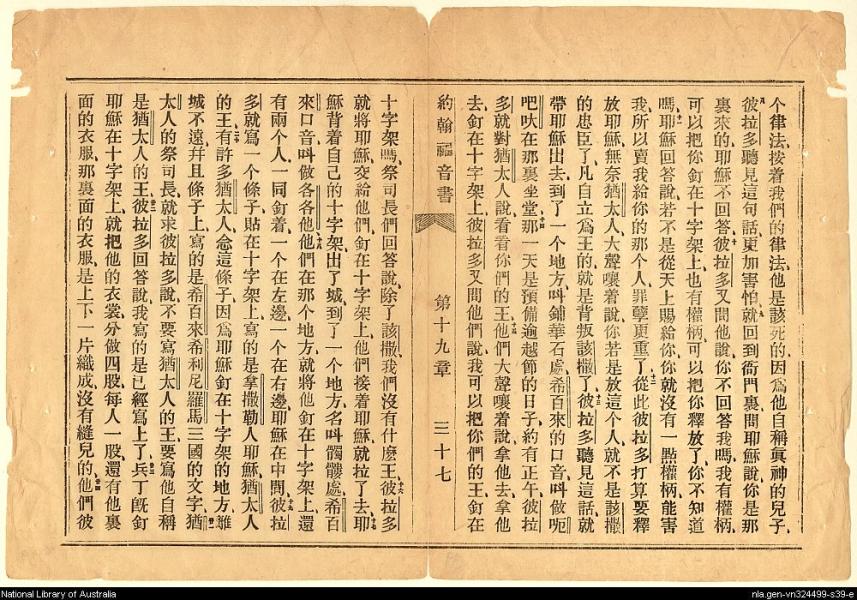 个律法、按着我們的律法、他是該死的、因爲他自稱眞神的兒子、
彼拉多聽見這句話、更加害怕、就回到衙門裏、問耶穌說、你是那
裏來的、耶穌不回答、彼拉多又問他說、你不回答我嗎、我有權柄、
可以把你釘在十字架上、也有權柄、可以把你釋放了、你不知道
嗎、耶穌回答說、若不是從天上賜給你、你就沒有一點權柄、能害
我、所以賣我給你的那个人、罪孽更重了、從此彼拉多打算要釋
放耶穌、無奈猶太人大聲嚷着說、你若是放這个人、就不是該撒
的忠臣了、凡自立爲王的、就是背叛該撒了、彼拉多聽見這話、就
帶耶穌出去、到了一个地方、叫鋪華石處、希百來的口音、叫做呃
吧吠、在那裏坐堂、那一天是預備逾越節的日子、約有正午、彼拉
多就對猶太人說、看看你們的王、他們大聲嚷着說、拿他去、拿他
去、釘在十字架上、彼拉多又問他們說、我可以把你們的王、釘在
約翰福音書 第十九章 三十七
十字架嗎、祭司長們回答說、除了該撒、我們沒有什麽王、彼拉多
就將耶穌交給他們、釘在十字架上、他們接着耶穌、就拉了去、耶
穌背着自己的十字架、出了城、到了一个地方、名叫髑髏處、希百
來口音、叫做各各他、他們在那个地方、就將他釘在十字架上、還
有兩个人、一同釘着、一个在左邊、一个在右邊、耶穌在中間、彼拉
多就寫一个條子、貼在十字架上、寫的是拿撒勒人耶穌、猶太人
的王、有許多猶太人、念這條子、因爲耶穌釘在十字架的地方、離
城不遠、幷且條子上、寫的是希百來、希利尼、羅馬、三國的文字、猶
太人的祭司長、就求彼拉多說、不要寫猶太人的王、要寫他自稱
是猶太人的王、彼拉多回答說、我寫的是已經寫上了、兵丁旣釘
耶穌在十字架上、就把他的衣裳分做四股、每人一股、還有他裏
面的衣服、那裏面的衣服、是上下一片織成、沒有縫兒的、他們彼
National Library of Australia
nla.gen-vn324499-s39-e